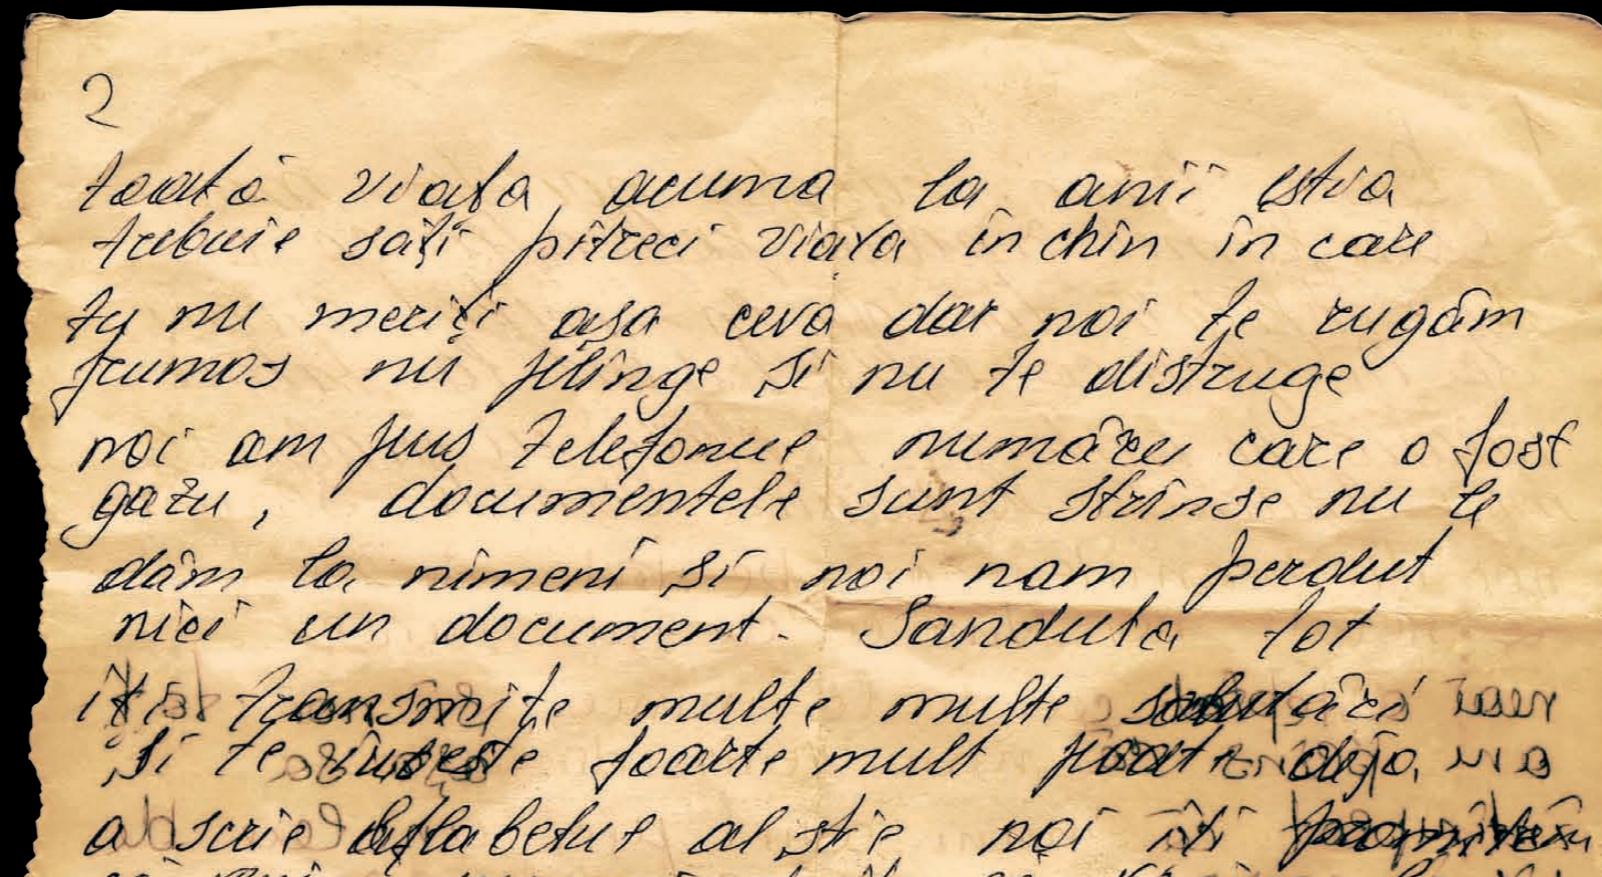 2
toată viața acuma la anii ișția
trebuie săți pitreci viața în chin în care
tu nu meriți așa ceva dar noi te rugăm
frumos nu plînge și nu te distruge
noi am pus telefonul numărul care o fost
gazu, documentele sunt strînse nu le
dăm la nimeni și noi nam perdut
nici un document. Sanduța tot
iți transmite multe multe salutări
și te iubește foarte mult poate deja
a scrie alfabetul al știe noi iți promitem